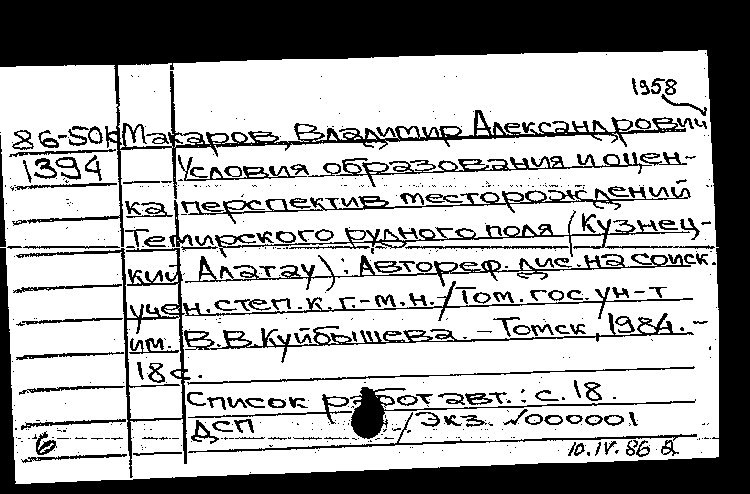 1958
86-5ОК Макаров, Владимир Александрович
1394 Условия образования и оцен-
ка перспектив месторождений
Темирского рудного поля (Кузнец-
кий Алатау): Автореф. дис. на соиск.
учен. степ. к. г.-м. н. -/Том. гос. ун-т
им. В. В. Куйбышева. - Томск, 1984. -
18 с.
Список работ авт.: с. 18.
ДСП /Экз. √000001
6 10.IV.86